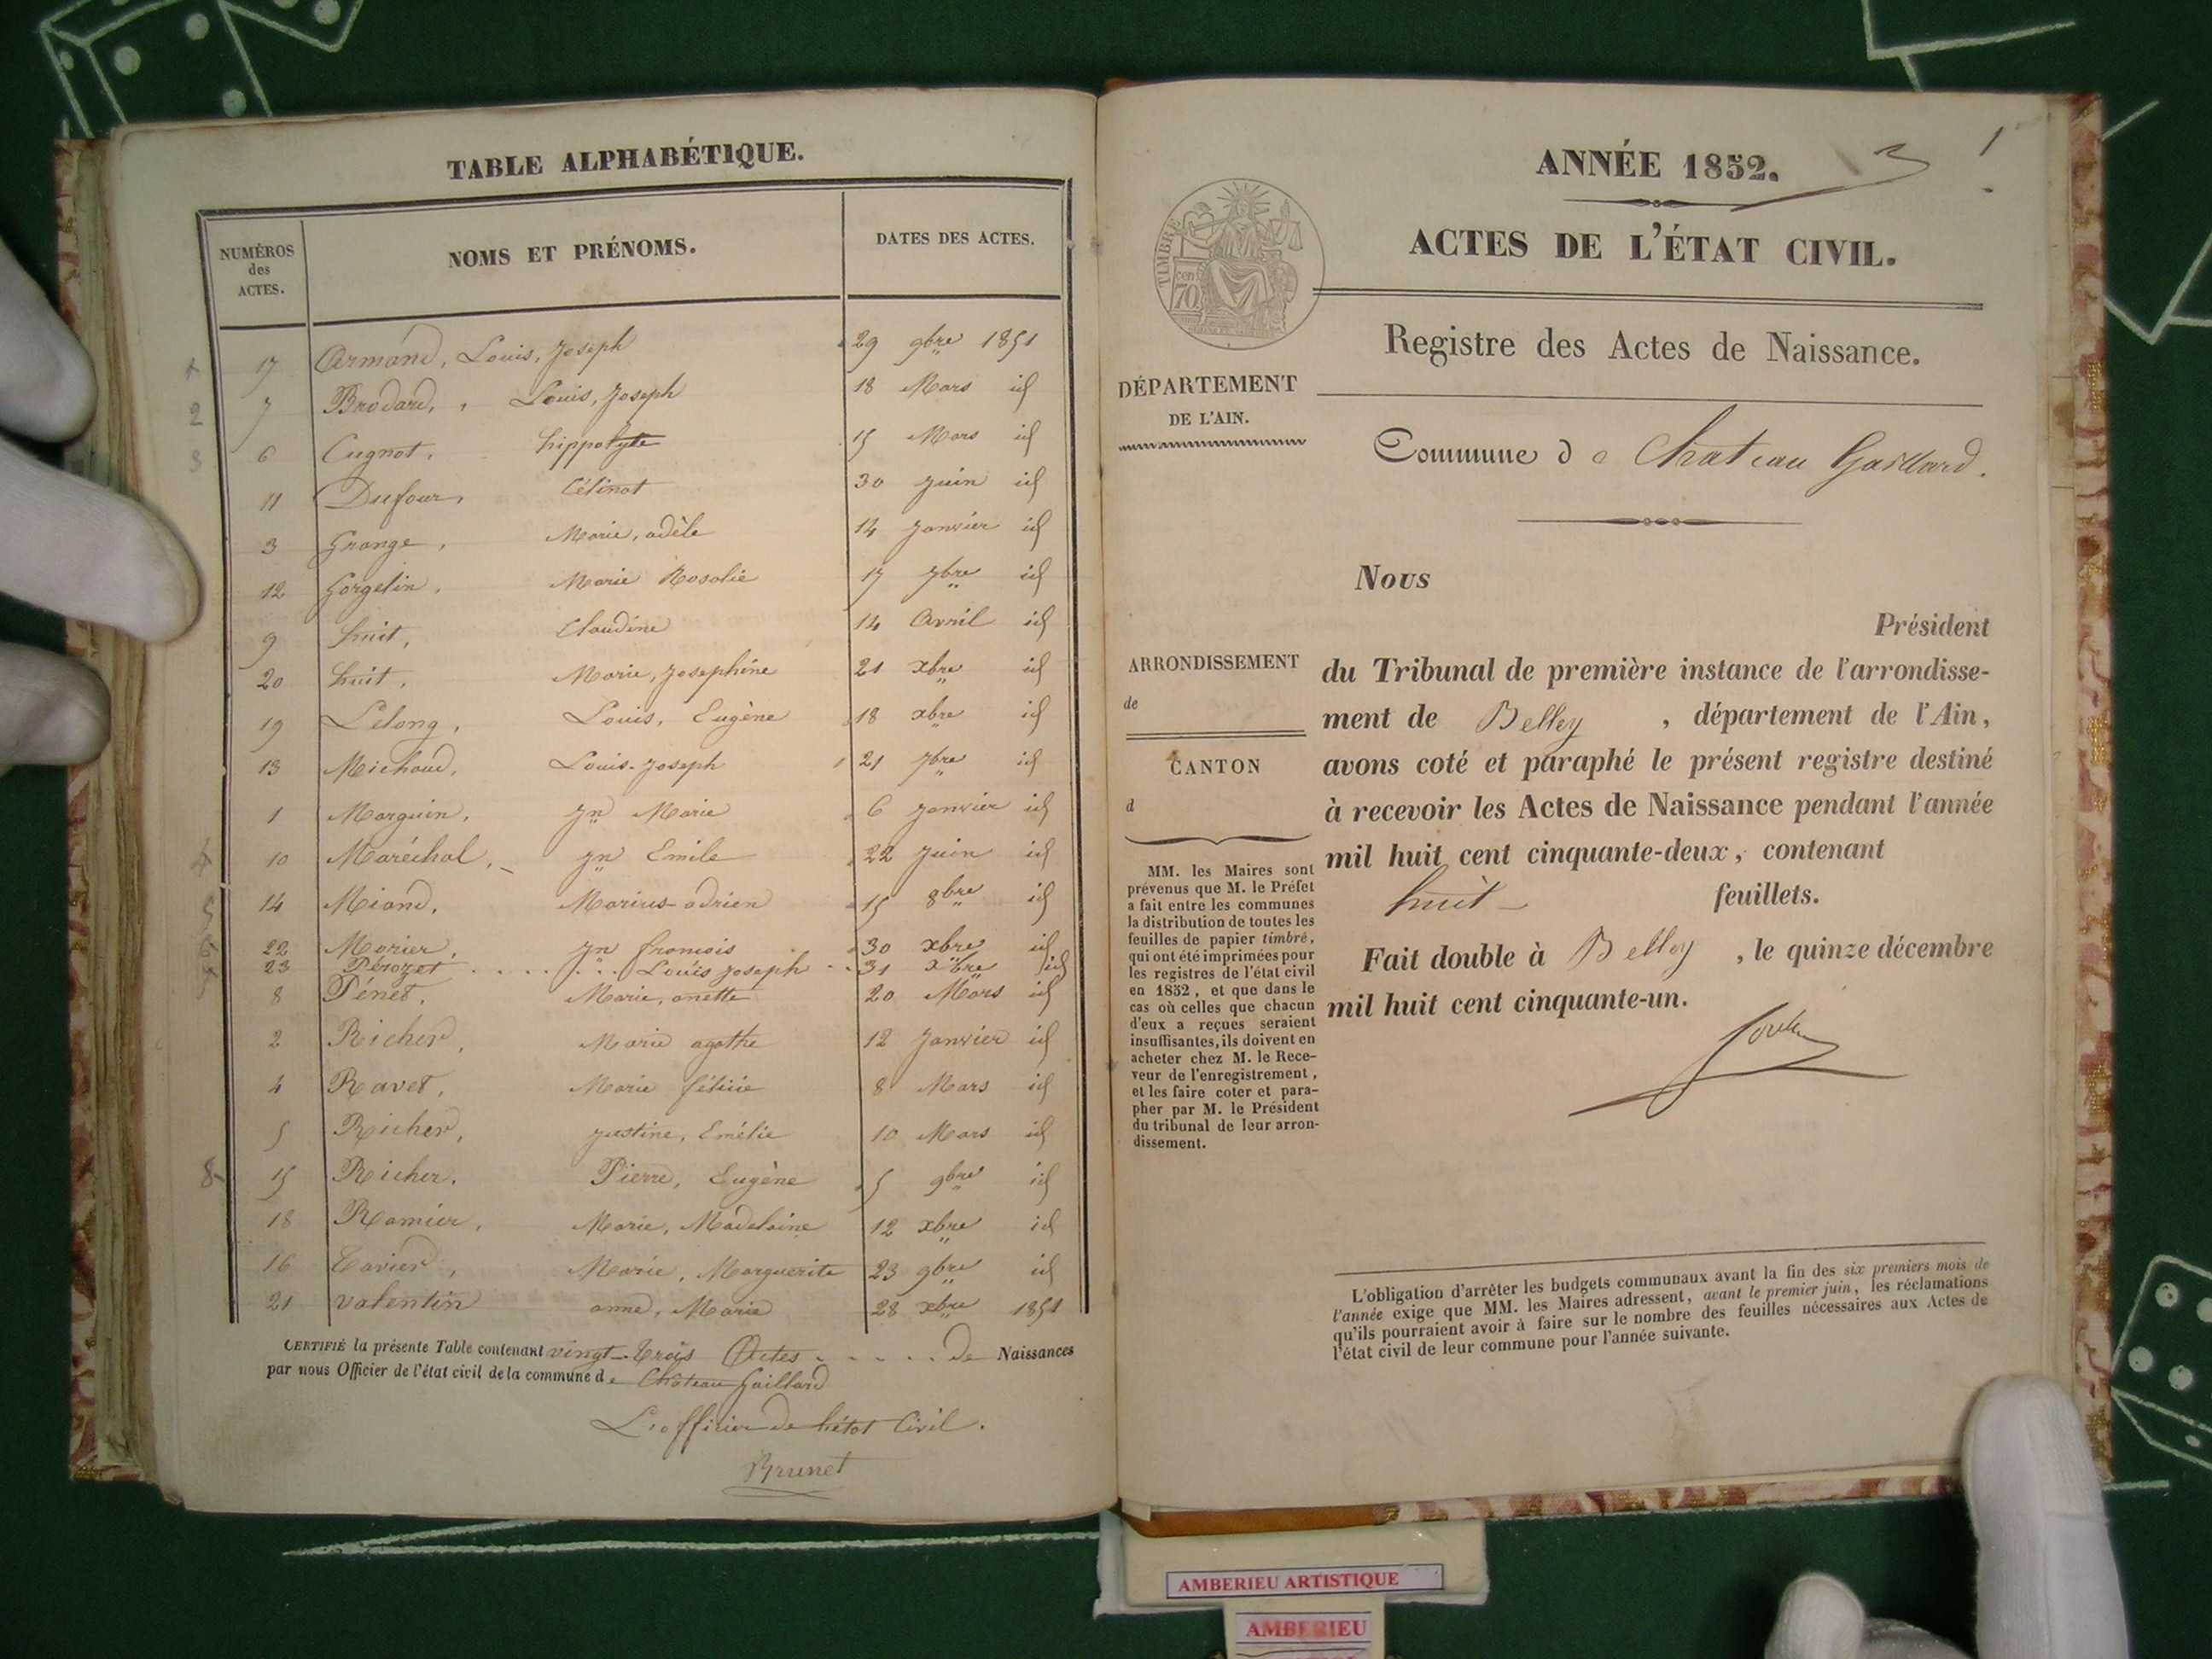 TABLE ALPHABÉTIQUE.
NUMÉROS
des
ACTES.
NOMS ET PRÉNOMS.
DATES DES ACTES.
17 Armand, Louis, Joseph 29 9bre 1851
2 7 Brodard, Louis, Joseph 18 Mars id
3 6 Cugnot, hippolyte 15 Mars id
11 Dufour, Célinot 30 Juin id
3 Grange, Marie, adèle 14 Janvier id
12 Gorgelin, Marie Rosalie 17 7bre id
9 huit, Claudine 14 Avril id
20 huit, Marie, Josephine 21 xbre id
19 Lelong, Louis, Eugène 18 xbre id
13 Michaud, Louis-Joseph 21 7bre id
1 Marguin, Jn Marie 6 Janvier id
4 10 Maréchal, Jn Emile 22 Juin id
5 14 Miand, Marius-adrien 15 8bre id
22 Morier, Jn francois 30 xbre id
23 Pérozet . . . . . . . Louis Joseph . . 31 xbre id
8 Pénet, Marie, anette 20 Mars id
2 Richer, Marie agathe 12 Janvier id
4 Ravet, Marie féliiie 8 Mars id
5 Richer, Justine, Emélie 10 Mars id
8 15 Richer, Pierre, Eugène 5 9bre id
18 Ramier, Marie, Madelaine 12 xbre id
16 Tavier, Marie, Marguerite 23 9bre id
21 Valentin anne, Marie 28 xbre 1851
CERTIFIÉ la présente Table contenant vingt-Trois Actes . . . . . de Naissances
par nous Officier de l'état civil de la commune de Château Gaillard
L'officier de l'état Civil.
Brunet
ANNÉE 1852. 3 1
ACTES DE L'ÉTAT CIVIL.
TIMBRE
70 cen
Registre des Actes de Naissance.
DÉPARTEMENT
DE L'AIN.
Commune de Chateau Gaillard.
Nous
Président
ARRONDISSEMENT
de
CANTON
d
du Tribunal de première instance de l'arrondisse-
ment de Belley, département de l'Ain,
avons coté et paraphé le présent registre destiné
à recevoir les Actes de Naissance pendant l'année
mil huit cent cinquante-deux, contenant
huit feuillets.
Fait double à Belley, le quinze décembre
mil huit cent cinquante-un.
MM. les Maires sont
prévenus que M. le Préfet
a fait entre les communes
la distribution de toutes les
feuilles de papier timbré,
qui ont été imprimées pour
les registres de l'état civil
en 1852, et que dans le
cas où celles que chacun
d'eux a reçues seraient
insuffisantes, ils doivent en
acheter chez M. le Rece-
veur de l'enregistrement,
et les faire coter et para-
pher par M. le Président
du tribunal de leur arron-
dissement.
L'obligation d'arrêter les budgets communaux avant la fin des six premiers mois de
l'année exige que MM. les Maires adressent, avant le premier juin, les réclamations
qu'ils pourraient avoir à faire sur le nombre des feuilles nécessaires aux Actes de
l'état civil de leur commune pour l'année suivante.
AMBERIEU ARTISTIQUE
AMBERIEU